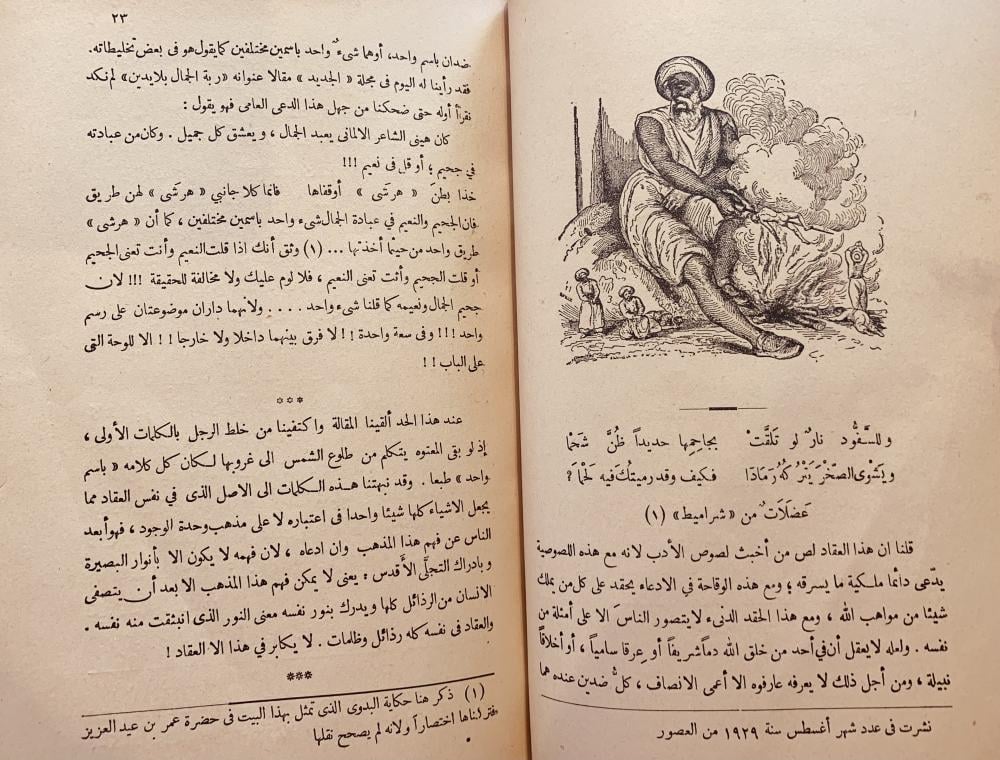 وللسَّفُّود نارٌ لو تَلقَّتْ بجاحِمِها حديداً ظُنَّ شَحْما
ويَشْوِى الصّخْرَ يَتْرُكهُ رَمَادًا فكيف وقد رميتُك فيه لَحْمَا؟
عَضَلَاتٌ من «شراميط» (١)
قلنا ان هذا العقاد لص من أخبث لصوص الأدب لانه مع هذه اللصوصية
يدّعى دائما ملكية ما يسرقه؛ ومع هذه الوقاحة في الادعاء يحقد على كل من يملك
شيئا من مواهب الله، ومع هذا الحقد الدنىء لا يتصور الناسَ الا على أمثلة من
نفسه. ولعله لا يعقل أن في أحد من خلق الله دماً شريفاً أو عِرقا سامياً، أو أخلاقاً
نبيلة، ومن أجل ذلك لا يعرفه عارفوه الا أعمى الانصاف، كلُّ ضدين عنده هما
نشرت فى عدد شهر أغسطس سنة ١٩٢٩ من العصور
٢٣
ضدان باسم واحد، أوهما شىءٌ واحد باسمين مختلفين كما يقول هو فى بعض تخليطاته.
فقد رأينا له اليوم فى مجلة «الجديد» مقالا عنوانه «ربة الجمال بلا يدين» لم نكد
نقرأ أوله حتى ضحكنا من جهل هذا الدعى العامى فهو يقول:
كان هينى الشاعر الالمانى يعبد الجمال، ويعشق كل جميل. وكان من عبادته
في جحيم؛ أو قل فى نعيم!!!
خذا بطنَ «هرشى» أوقفاها فانما كلا جانبي «هرَشى» لهن طريق
فان الجحيم والنعيم في عبادة الجمال شىء واحد باسمين مختلفين، كما أن «هرشى»
طريق واحد من حيثما أخذتها ... (١) وثق أنك اذا قلت النعيم وأنت تعنى الجحيم
أو قلت الجحيم وأنت تعنى النعيم، فلا لوم عليك ولا مخالفة للحقيقة!!! لان
جحيم الجمال ونعيمه كما قلنا شىء واحد .... ولانهما داران موضوعتان على رسم
واحد!!! وفى سعة واحدة!! لا فرق بينهما داخلا ولا خارجا!! الا للوحة التى
على الباب!!
***
عند هذا الحد ألقينا المقالة واكتفينا من خلط الرجل بالكلمات الأولى،
إذ لو بقى المعتوه يتكلم من طلوع الشمس الى غروبها لكان كل كلامه «باسم
واحد» طبعا. وقد نبهتنا هذه الكلمات الى الاصل الذى في نفس العقاد مما
يجعل الاشياء كلها شيئا واحدا فى اعتباره لا على مذهب وحدة الوجود، فهو أبعد
الناس عن فهم هذا المذهب وان ادعاه، لان فهمه لا يكون الا بأنوار البصيرة
وبادراك التجلَّى الأقدس: يعنى لا يمكن فهم هذا المذهب الا بعد أن يتصفى
الانسان من الرذائل كلها ويدرك بنور نفسه معنى النور الذى انبثقت منه نفسه.
والعقاد فى نفسه كله رذائل وظلمات. لا يكابر في هذا الا العقاد!
***
(١) ذكر هنا حكاية البدوى الذى تمثل بهذا البيت فى حضرة عمر بن عبد العزيز
فتركناها اختصاراً ولانه لم يصحح نقلها